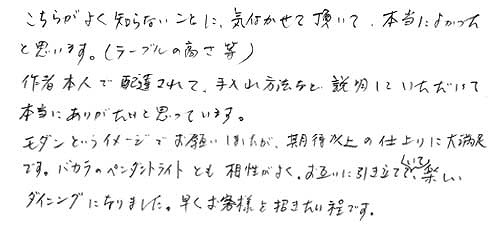 こちらがよく知らないことに、気付かせて頂いて、本当によかった
と思います。(テーブルの高さ等)
作者本人で配達されて、手入れ方法など説明していただけて
本当にありがたいと思っています。
モダンというイメージでお願いしましたが、期待以上の仕上りに大満足
です。バカラのペンダントライトとも相性がよく、お互いに引き立てていて、楽しい
ダイニングになりました。早くお客様を招きたい程です。